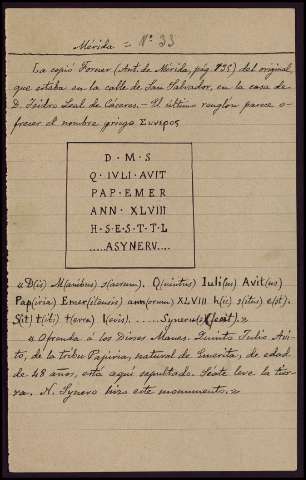 Mérida = Nº 33
La copió Forner (Ant. de Mérida, pág. 135) del original,
que estaba en la calle de San Salvador, en la casa de
D. Isidro Leal de Cáceres. — El último renglon parece o-
frecer el nombre griego Συνερος
D · M · S
Q · IVLI · AVIT
PAP · EMER
ANN · XLVIII
H · S · E · S · T · T · L
.....ASYNERV....
« D(is) M(anibus) s(acrum). Q(uintus) Iuli(us) Avit(us)
Pap(iria) Emer(itensis) ann(orum) XLVIII h(ic) s(itus) e(st).
S(it) t(ibi) t(erra) l(evis). ..... Syneru(s) f(ecit). »
« Ofrenda á los Dioses Manes. Quinto Julio Avi-
to, de la tribu Papiria, natural de Emerita, de edad
de 48 años, está aquí sepultado. Séate leve la tier-
ra. N. Synero hizo este monumento. »